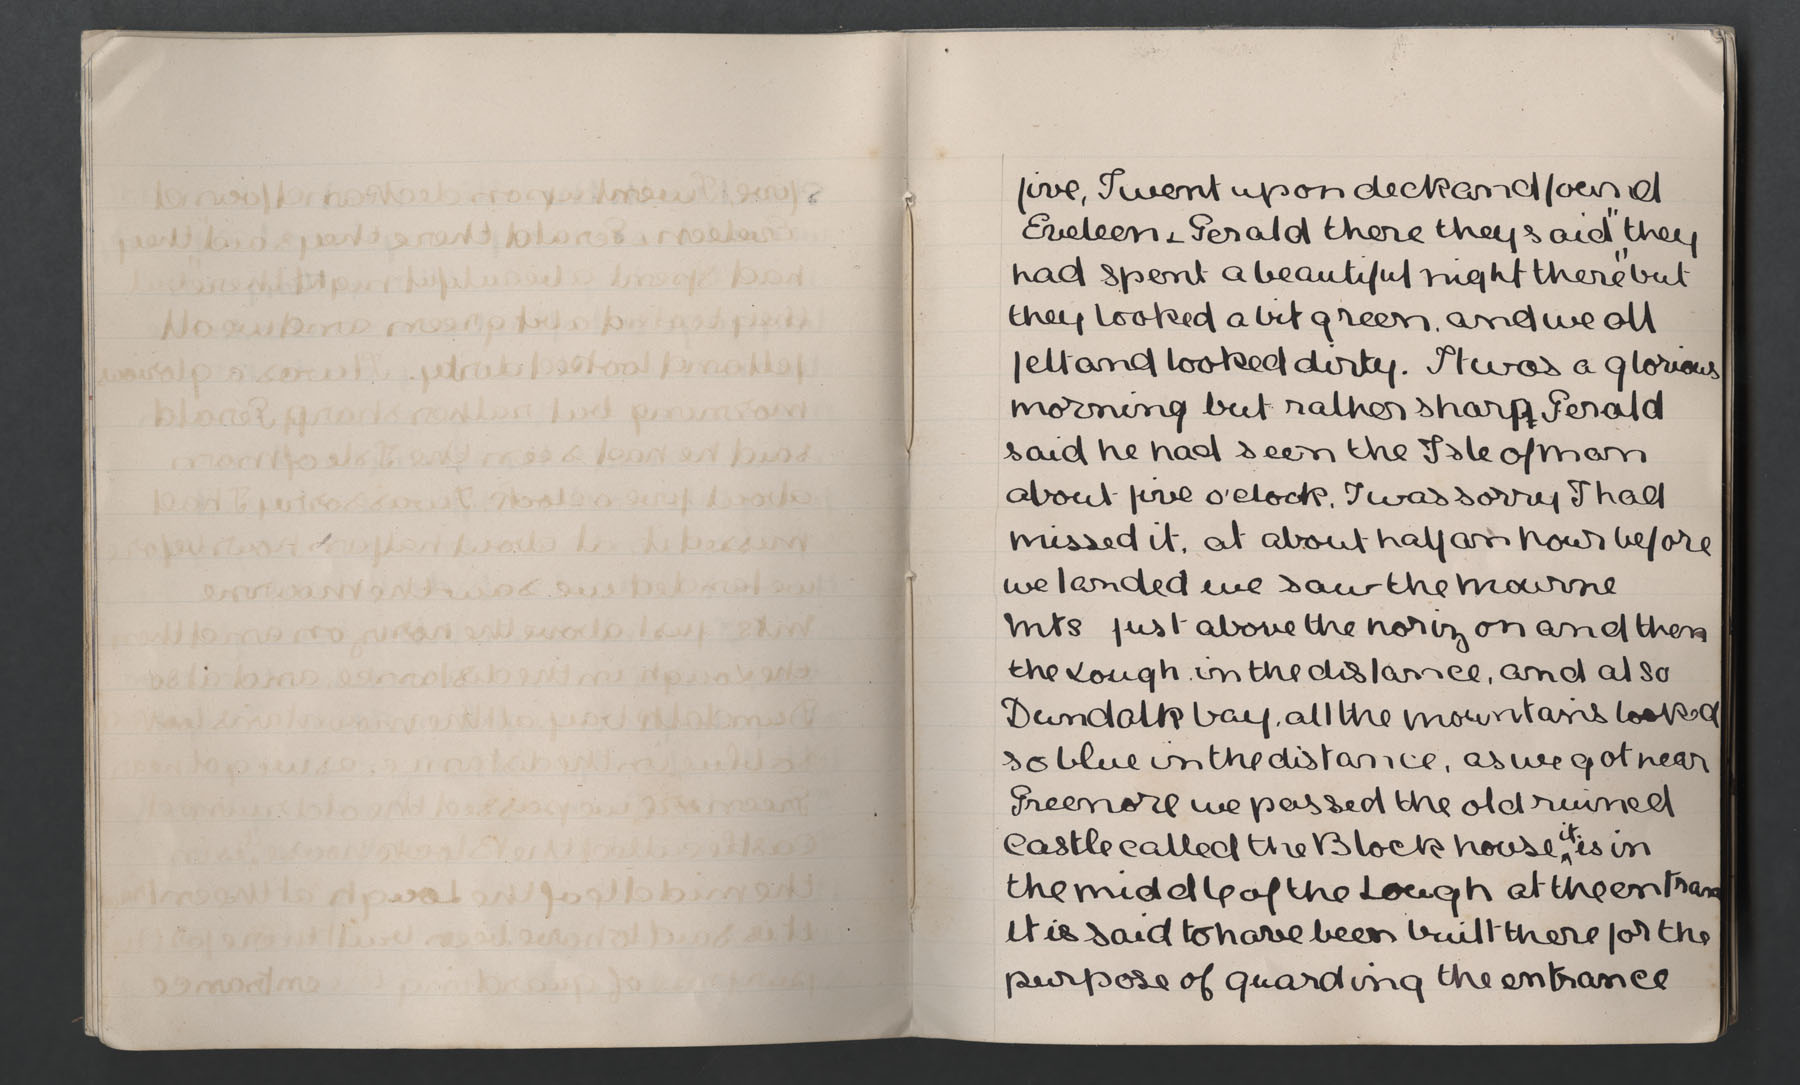 five, I went up on deck and found
Eveleen & Gerald there they said "they
had spent a beautiful night there" but
they looked a bit green, and we all
felt and looked dirty. It was a glorious
morning but rather sharp, Gerald
said he had seen the Isle of man
about five o'clock, I was sorry I had
missed it, at about half an hour before
we landed we saw the Mourne
Mts just above the horizon and then
the Lough in the distance, and also
Dundalk bay, all the mountains looked
so blue in the distance, as we got near
Greenore we passed the old ruined
castle called the Block house, it is in
the middle of the Lough at the entran
It is said to have been built there for the
purpose of guarding the entrance